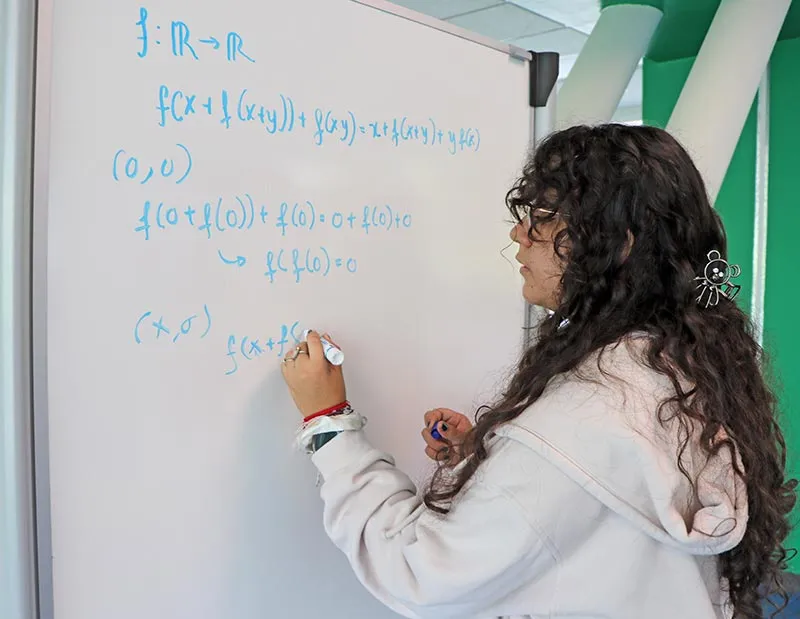 f : ℝ → ℝ
f(x + f(x+y)) + f(xy) = x + f(x+y) + y f(x)
(0, 0)
f(0 + f(0)) + f(0) = 0 + f(0) + 0
↳ f(f(0) = 0
(x, 0) f(x + f(